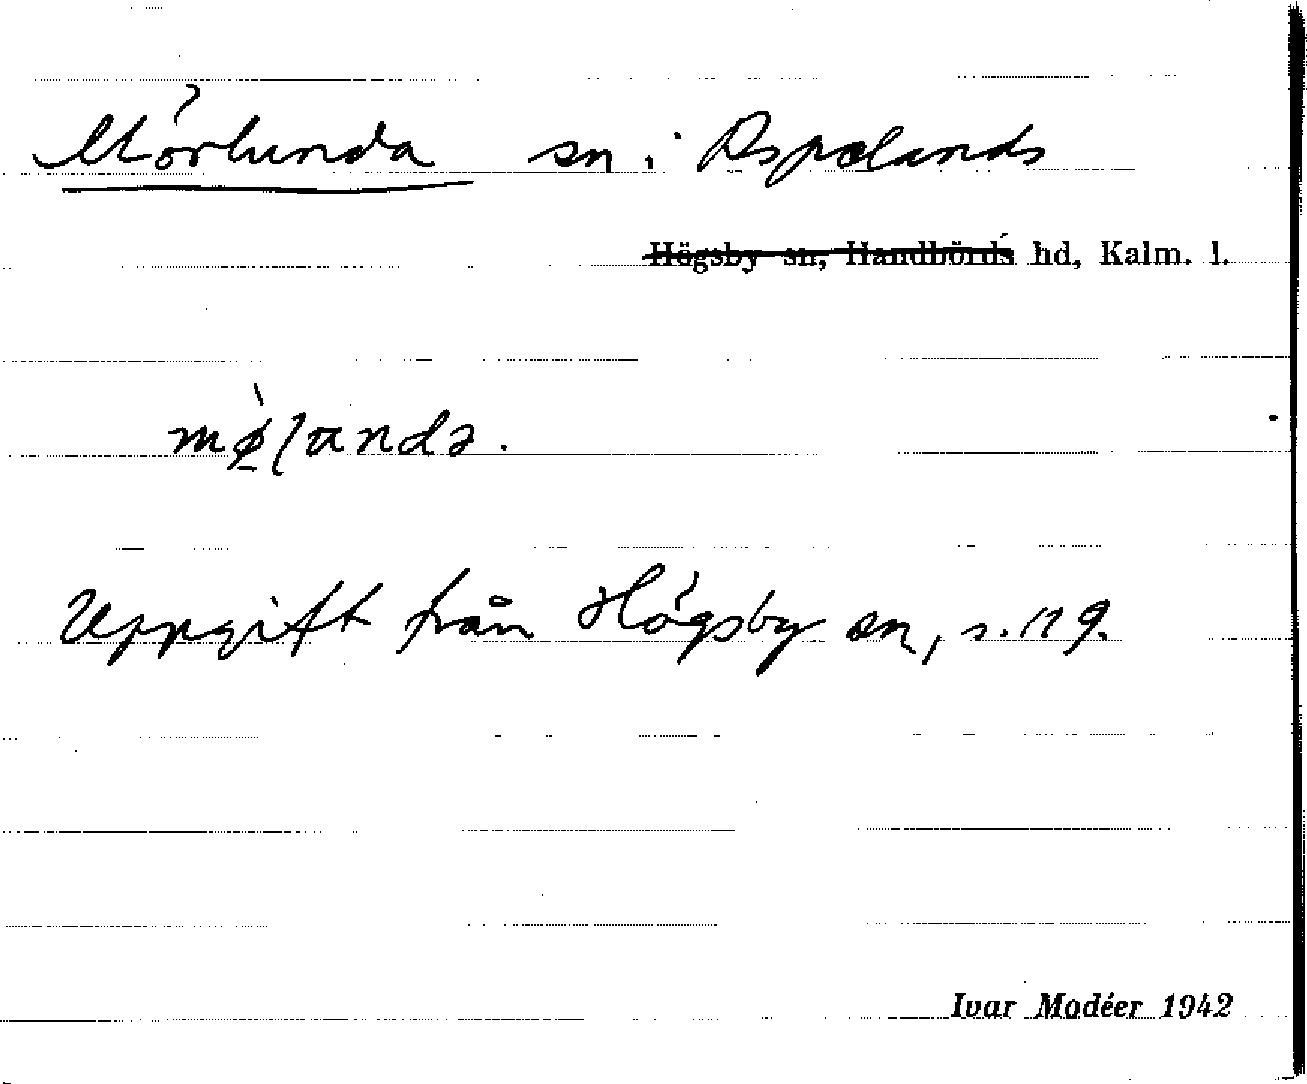 Mörlunda sn i Aspelands
Högsby sn, Handbörds hd, Kalm. l.
mø̀ɭandə.
Uppgift från Högsby sn, s. 119.
Ivar Modéer 1942